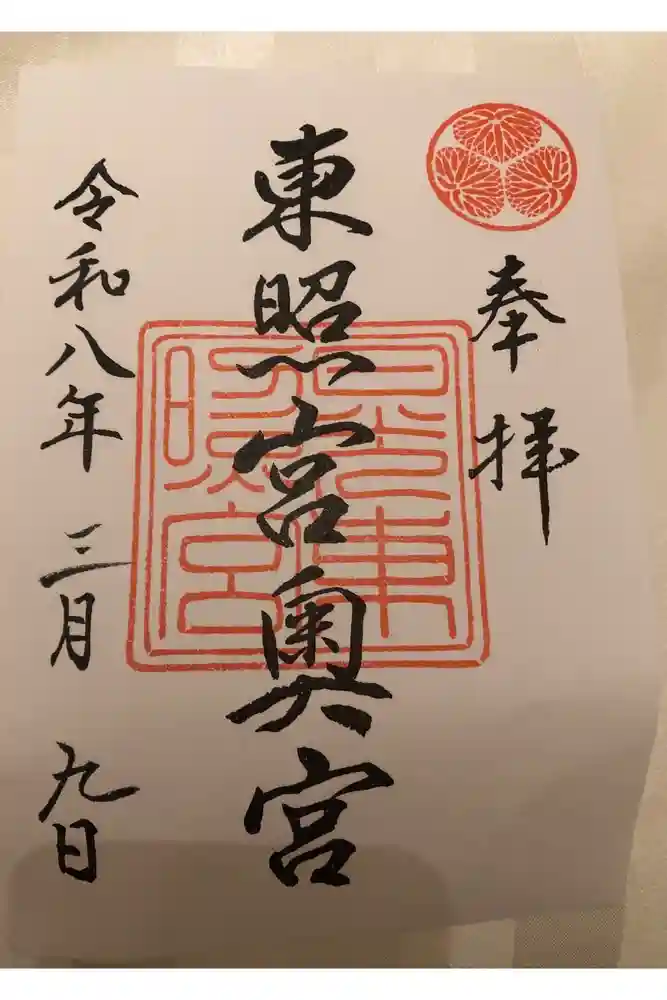 奉拝
東照宮奥宮
日光東照宮
令和八年 三月 九日